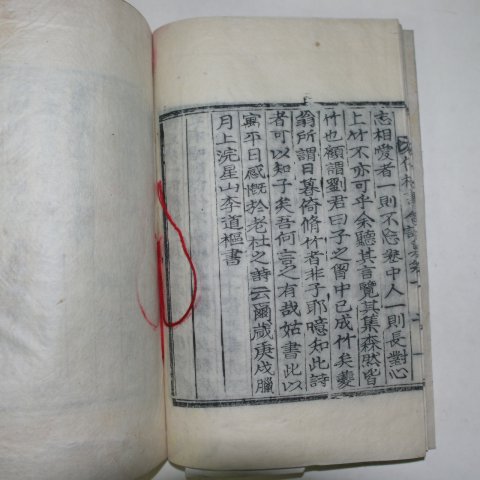 志相愛者一則不愈愁中人一則長對心
上竹不亦可乎余聽其言覽其集森然皆
竹也顧謂劉君曰子之胷中已成竹矣夔
翁所謂日暮倚脩竹者非子耶臆知此詩
者可以知子矣吾何言之有哉姑書此以
寓平日感慨於老杜之詩云爾歲庚戌臘
月上浣星山李道樞書